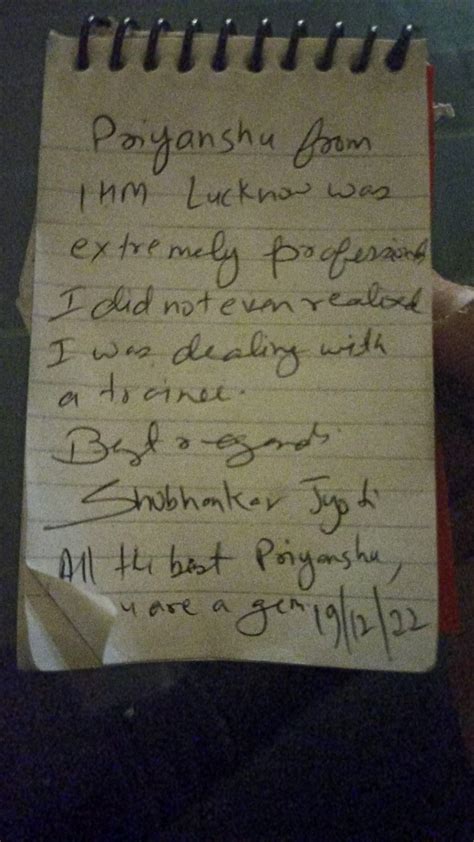 Priyanshu from
IHM Lucknow was
extremely professional
I did not even realised
I was dealing with
a trainee.
Best regards
Shubhankar Jyoti
All the best Priyanshu,
u are a gem 19/12/22